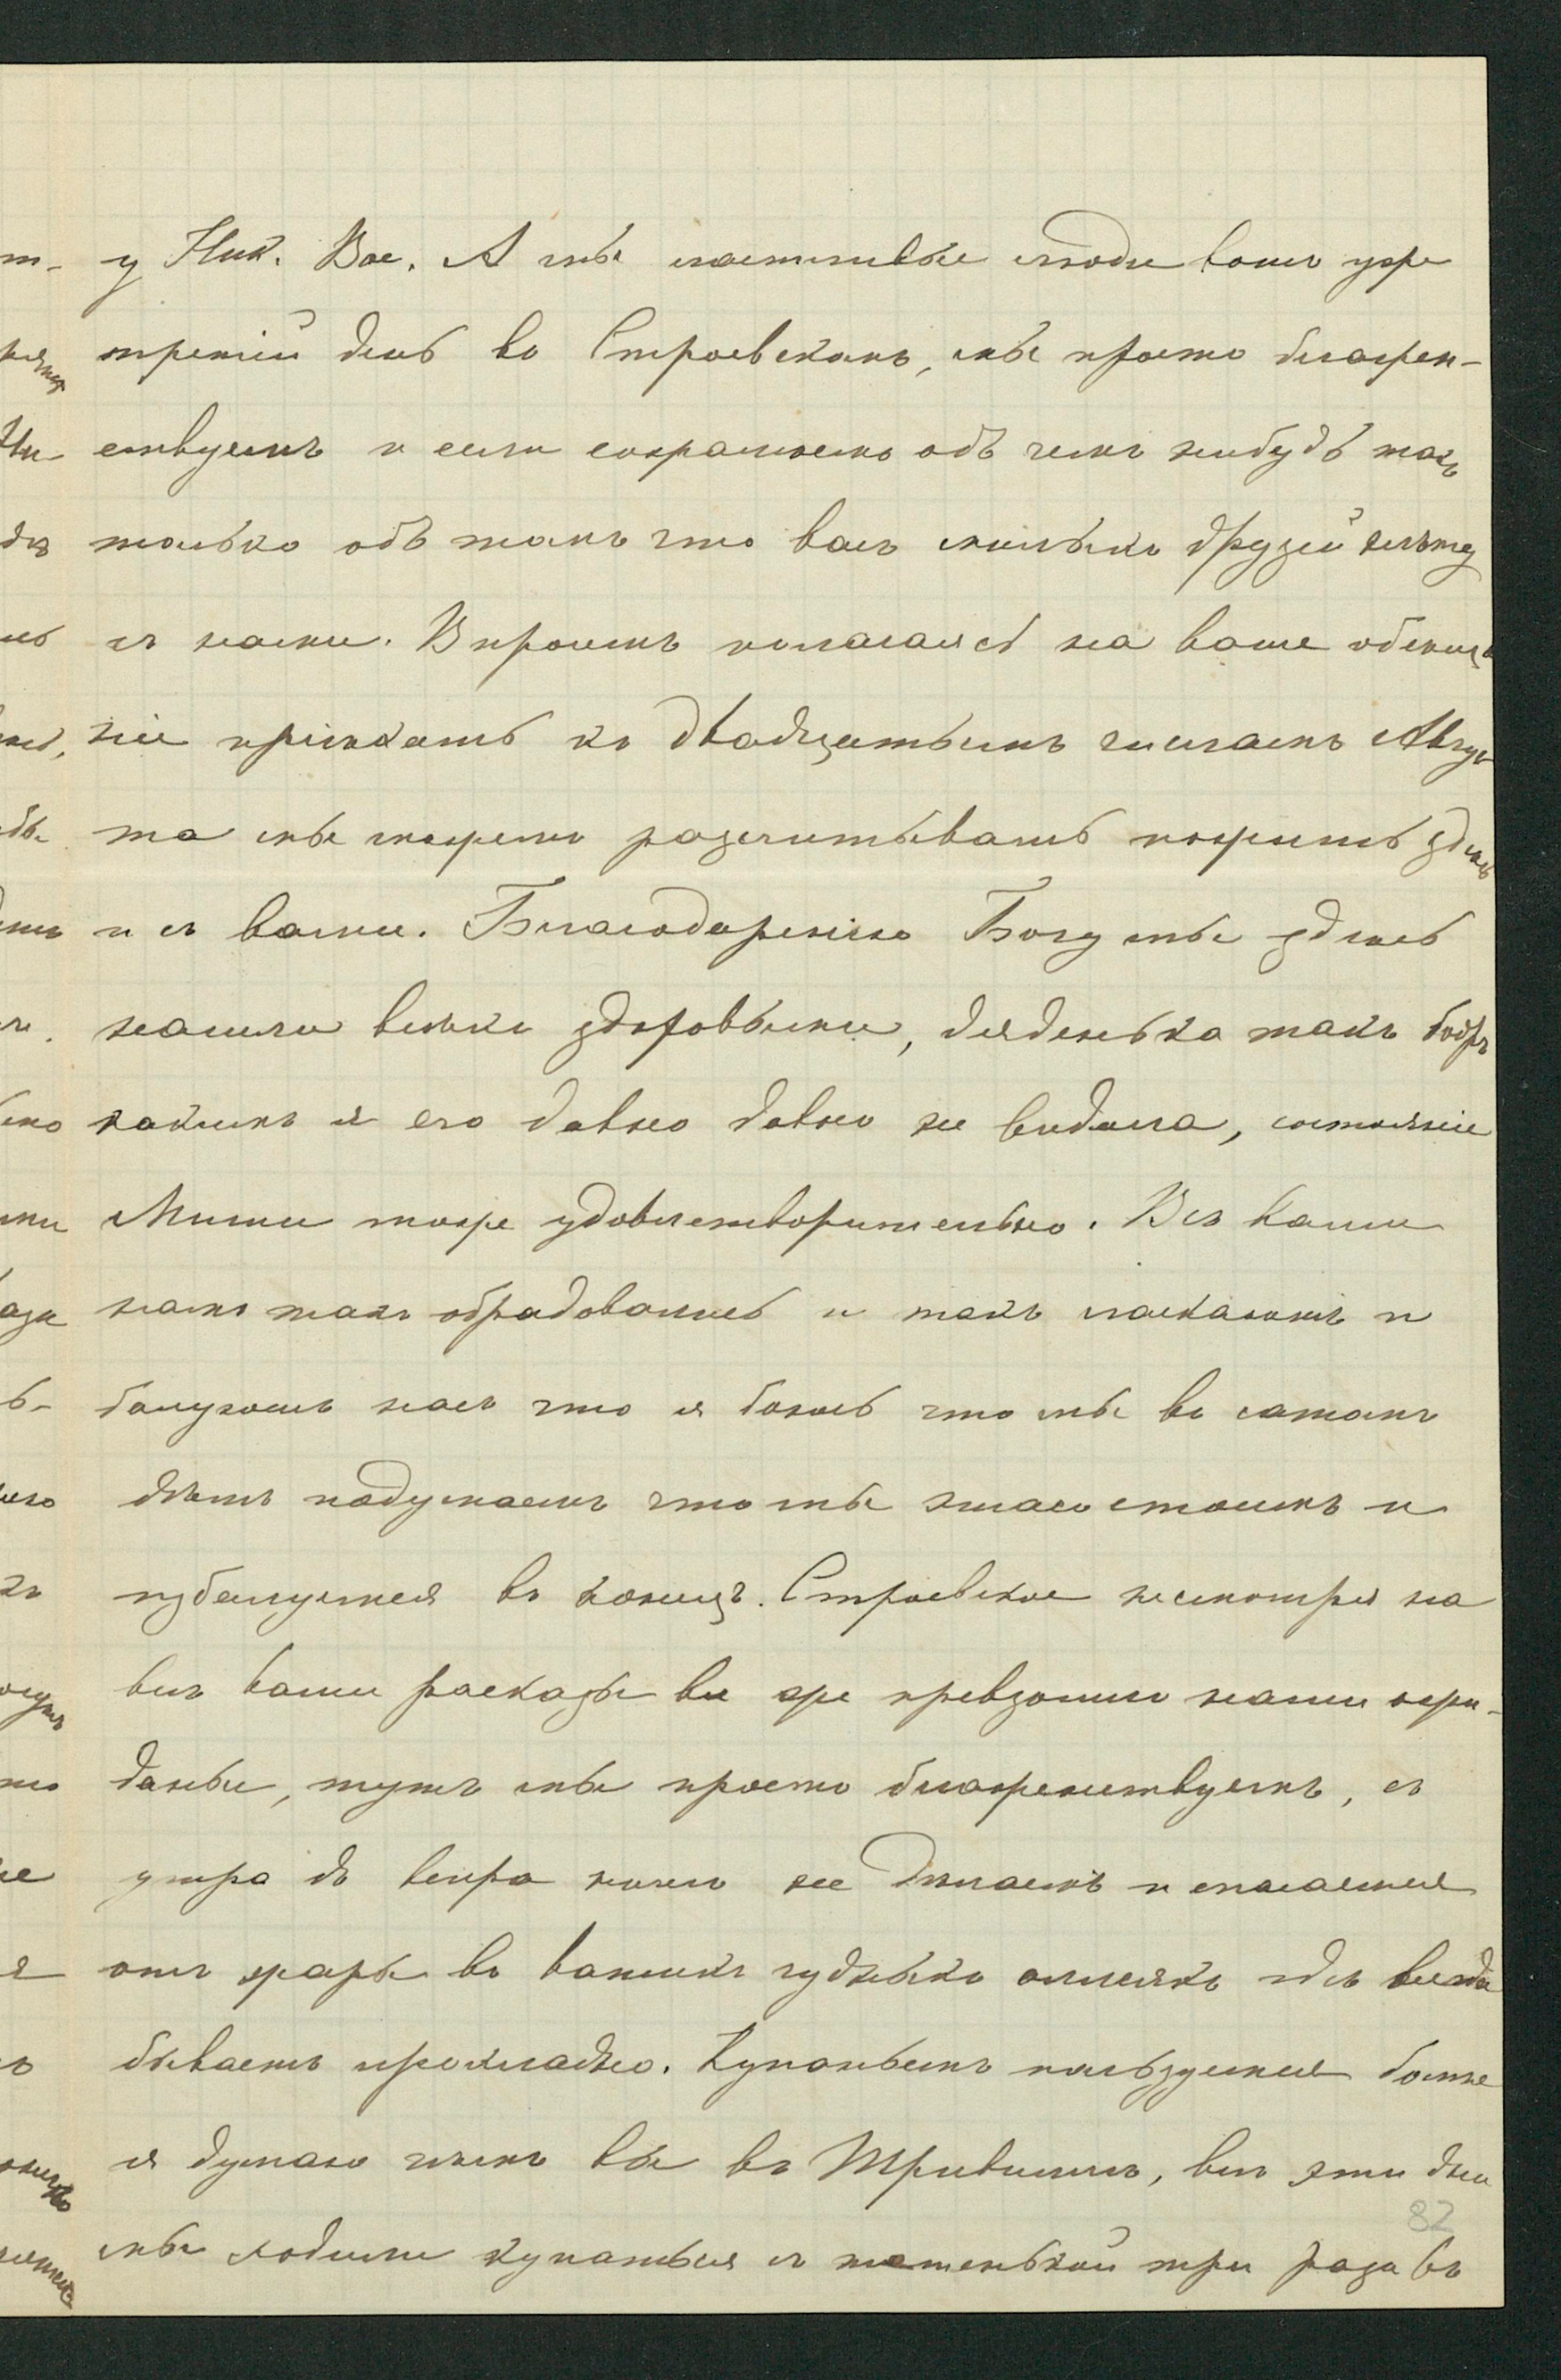 у Ник. Вас. А мы счастливые люди вотъ уже
третій день въ Строевскомъ, мы просто блажен-
ствуемъ и если сожалѣемъ объ чемъ нибудь такъ
только объ томъ что васъ милыхъ друзей нѣту
съ нами. Впрочемъ полагаясь на ваше обѣща
ніе пріѣхать къ двадцатымъ числамъ Авгус
та мы можемъ розсчитывать пожить здѣсь
и съ вами. Благодареніе Богу мы здѣсь
нашли всѣхъ здоровыми, дяденька такъ бодръ
какимъ я его давно давно не видала, состояніе
Миши тоже удовлетворительно. Всѣ ваши
намъ такъ обрадовались и такъ ласкаютъ и
балуютъ насъ что я боюсь что мы въ самомъ
дѣлѣ подумаемъ что мы этаго стоимъ и
избалуемся въ конецъ. Строевское несмотря на
всѣ ваши расказы все же превзошло наши ожи-
данья, тутъ мы просто блаженствуемъ, съ
утра до вечера ничего не дѣлаемъ и спасаемся
отъ жары въ вашихъ чудныхъ аллеяхъ гдѣ всегда
бываетъ прохладно. Купаньемъ пользуемся болѣе
я думаю чѣмъ вы въ Тривиллѣ, всѣ эти дни
мы ходили купаться съ тетенькой три раза въ
82